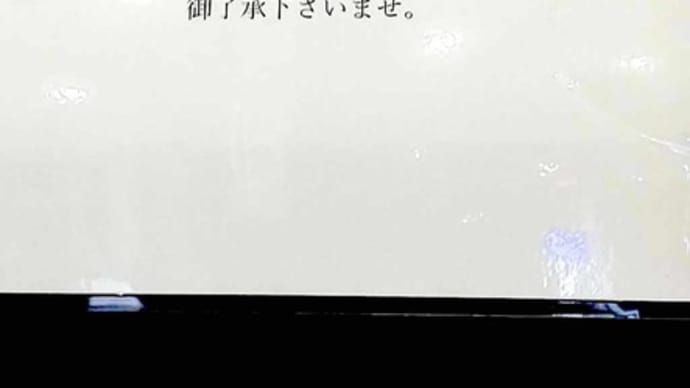 御了承下さいませ。